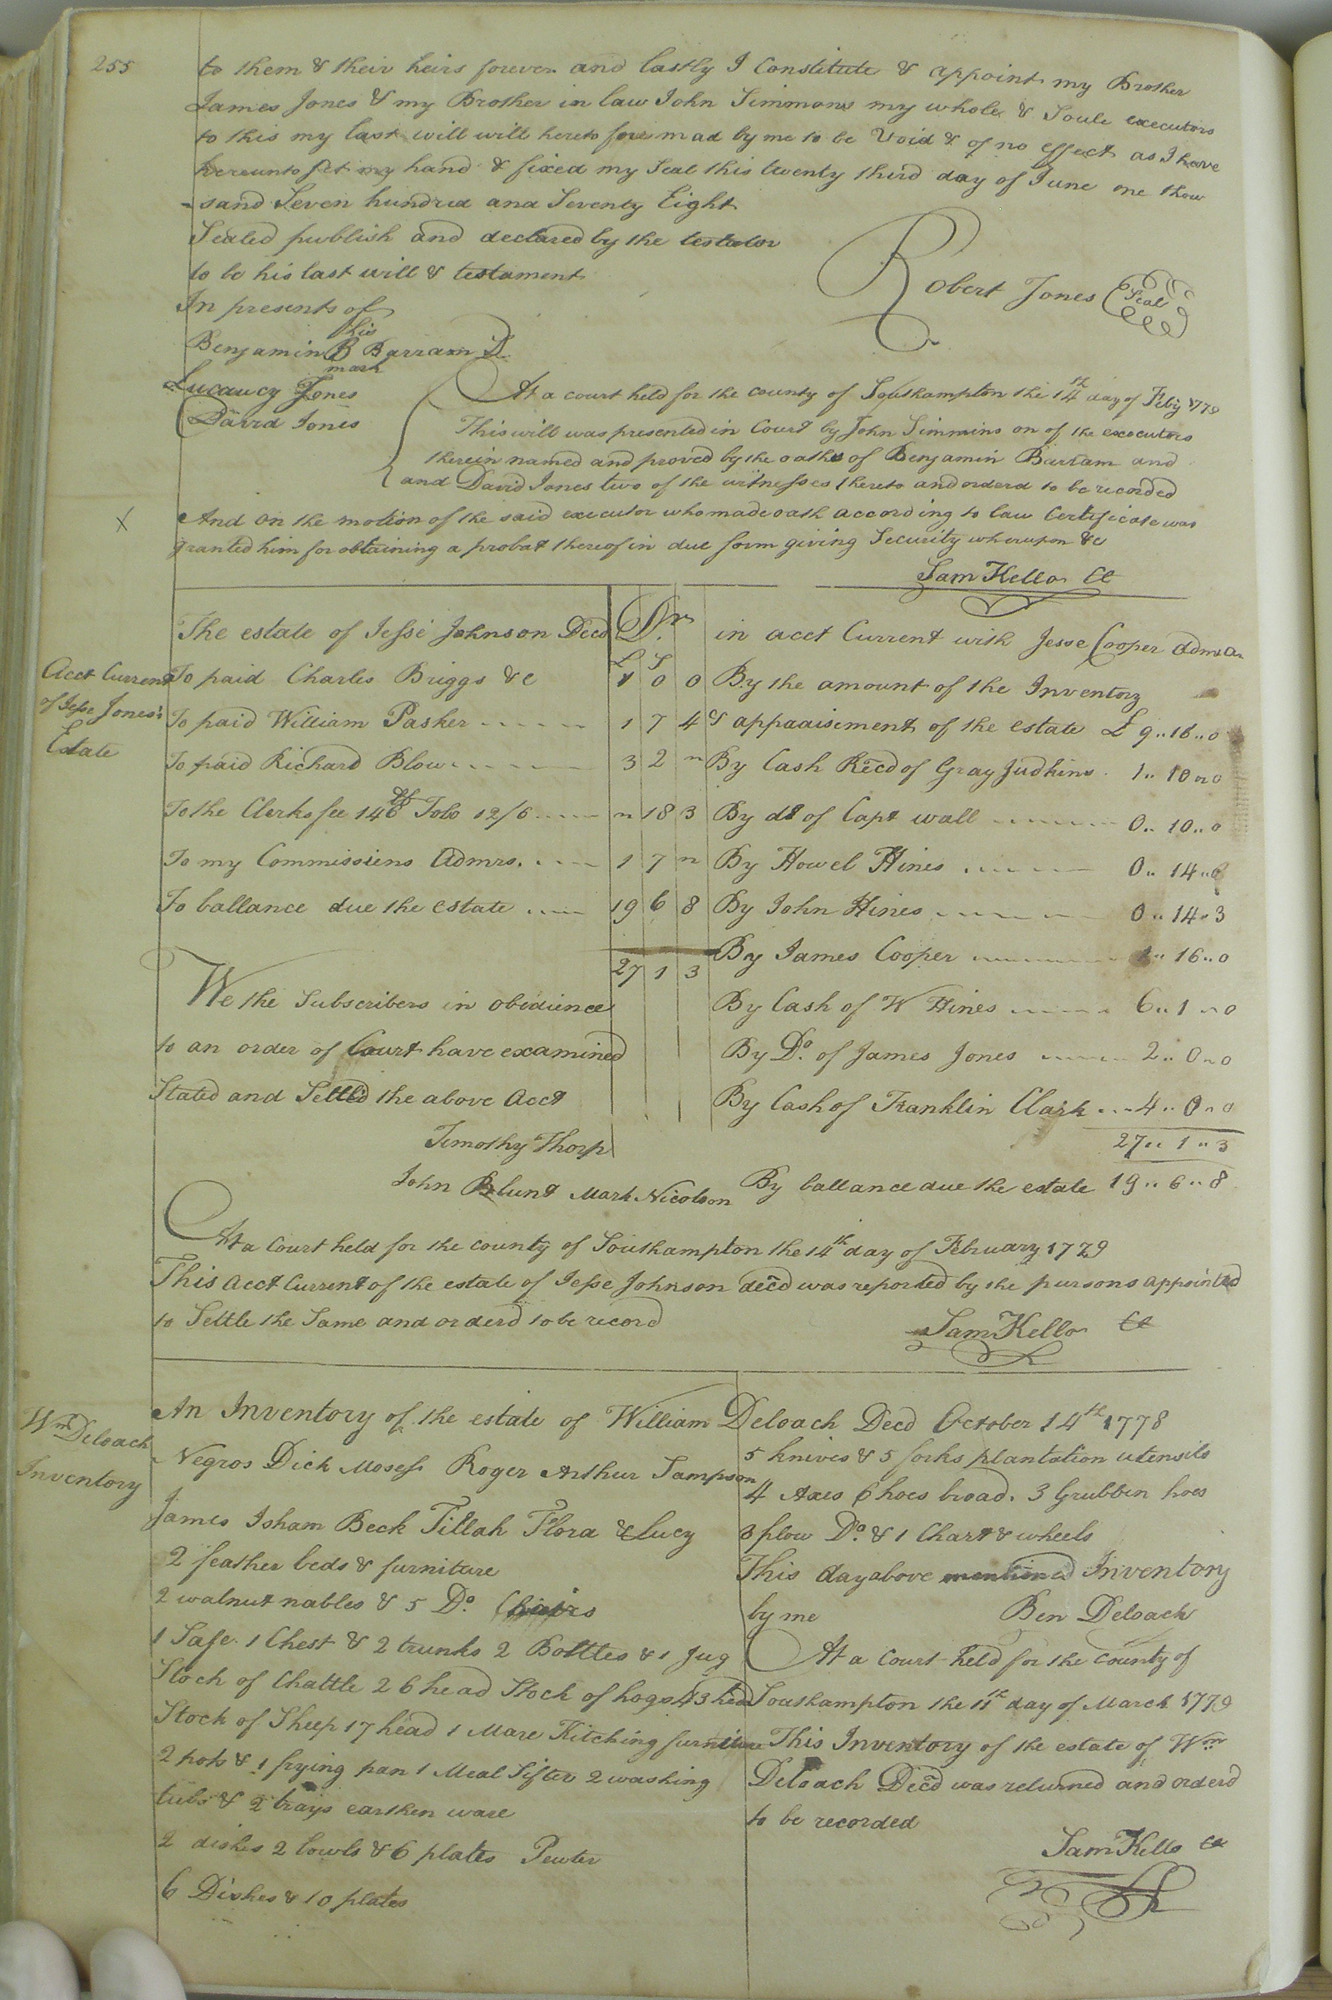 255
to them & their heirs forever and lastly I Constitute & appoint my Brother
James Jones & my Brother in law John Simmons my whole & Soule executors
to this my last will will heretofore mad by me to be Void & of no effect as I have
hereunto set my hand & fixed my Seal this twenty third day of June one thou
-sand Seven hundred and Seventy Eight
Sealed publish and declared by the testator
to be his last will & testament
Robert Jones (Seal)
In presents of
his
Benjamin B Barram
mark
Lucaucy Jones
David Jones
At a court held for the county of Southampton the 14th day of Feby 1779
This will was presented in Court by John Simmins on of the executors
therein named and proved by the oaths of Benjamin Barram and
and David Jones two of the witnesses thereto and orderd to be recorded
X
And on the motion of the said executor who made oath according to law Certificate was
granted him for obtaining a probat thereof in due form giving Security whereupon &c
Sam Kello Cl
Acct Current
of Jesse Jones's
Estate
The estate of Jesse Johnson Decd Dr
£ S
To paid Charles Briggs &c 1 0 0
To paid William Pasher 1 7 4
To paid Richard Blow 3 2 "
To the Clerks fee 146 lb Tobo 12/6 " 18 3
To my Commissions Admrs. 1 7 "
To ballance due the estate 19 6 8
27 1 3
We the Subscribers in obidience
to an order of Court have examined
Stated and Settled the above Acct
Timothy Thorp
John Blunt Mark Nicolson
in acct Current with Jesse Cooper Admor
By the amount of the Inventory
& appaaisement of the estate £ 9..16..0
By Cash Recd of Gray Judkins 1..10..0
By do of Capt wall 0..10..0
By Howel Hines 0..14..0
By John Hines 0..14..3
By James Cooper 1..16..0
By Cash of W Hines 6..1..0
By Do. of James Jones 2..0..0
By Cash of Franklin Clark 4..0..0
27..1..3
By ballance due the estate 19..6..8
At a Court held for the county of Southampton the 14th day of February 1779
This acct Current of the estate of Jesse Johnson decd was reported by the pursons appointed
to Settle the Same and orderd to be record
Sam Kello Cl
Wm Deloach
Inventory
An Inventory of the estate of William Deloach Decd October 14th 1778
Negros Dick Moses Roger Arthur Sampson
James Isham Beck Tillah Flora & Lucy
2 feather beds & furniture
2 walnut nables & 5 Do. Chairs
1 Safe 1 Chest & 2 trunks 2 Bottles & 1 Jug
Stock of Chattle 26 head Stock of hogs 43 head
Stock of Sheep 17 head 1 Mare Kitching furniture
2 pots & 1 frying pan 1 Meal Sifter 2 washing
tubs & 2 trays earthen ware
2 dishes 2 bowls & 6 plates Pewter
6 Dishes & 10 plates
5 knives & 5 forks plantation utensils
4 Axes 6 hoes broad. 3 Grubben hoes
3 plow Do. & 1 Chart & wheels
This day above mentioned Inventory
by me Ben Deloach
At a Court held for the County of
Southampton the 11th day of March 1779
This Inventory of the estate of Wm
Deloach Decd was returned and orderd
to be recorded
Sam Kello Cl